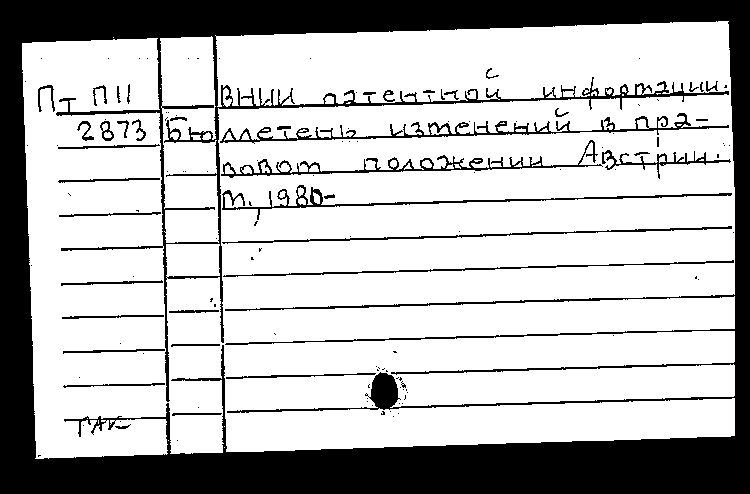 Пт П11 ВНИИ патентной информации.
2873 Бюллетень изменений в пра-
вовом положении Австрии.
М., 1980-
ГАК